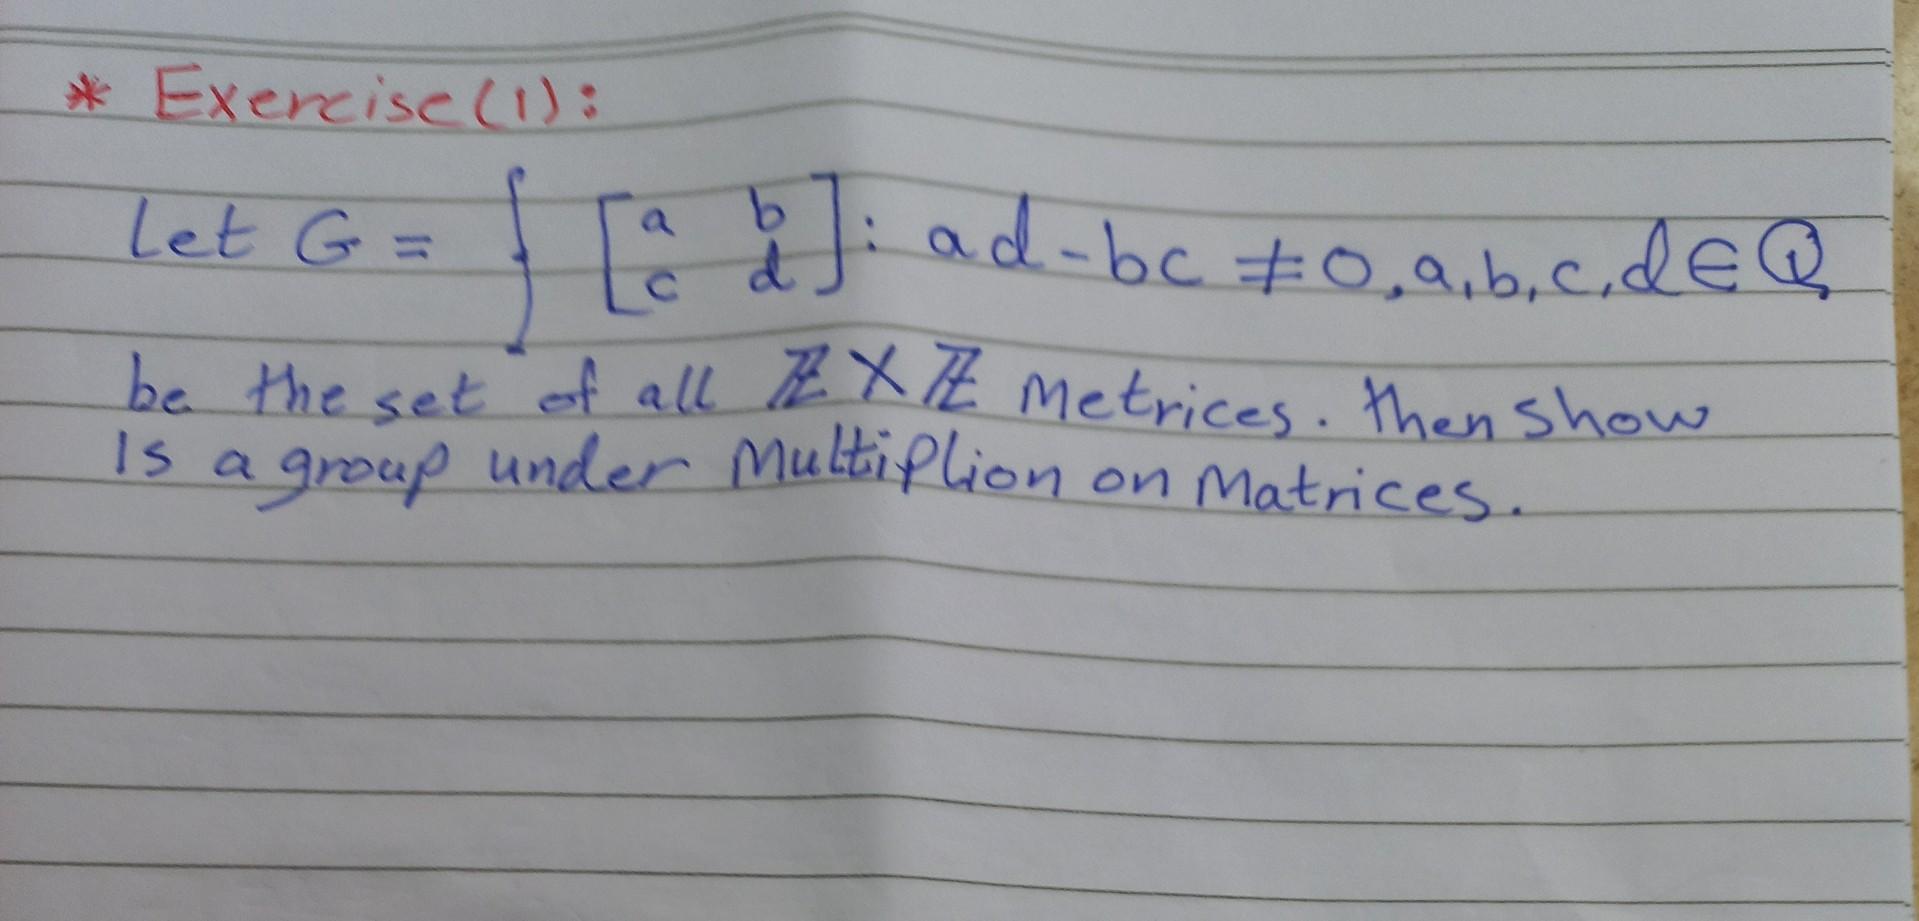 * Exercise(1):
Let G = { [a b c d] : ad-bc ≠ 0, a,b,c,d ∈ ℚ
be the set of all ℤ X ℤ Metrices. then show
is a group under Multiplion on Matrices.